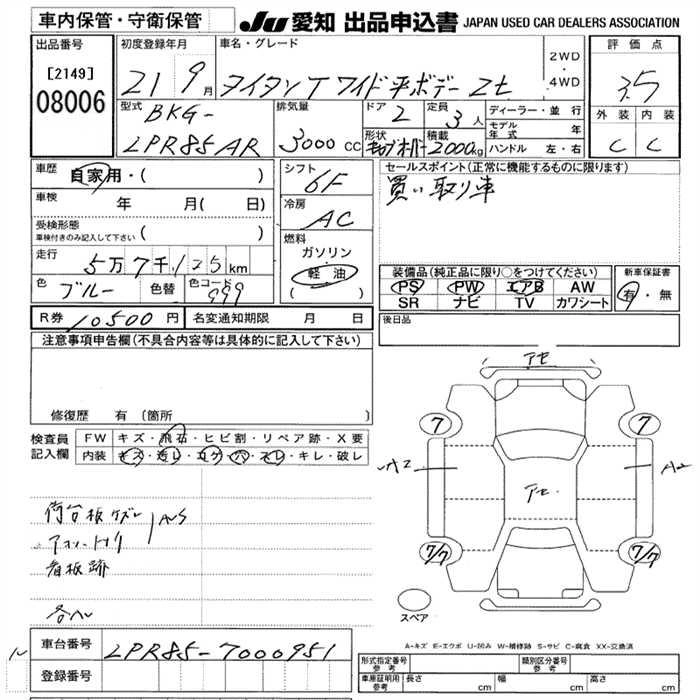 車内保管・守衛保管
JU 愛知 出品申込書 JAPAN USED CAR DEALERS ASSOCIATION
出品番号
[2149]
08006
初度登録年月
21 9月
車名・グレード
タイタンT ワイド平ボデー 2t
2WD
・
4WD
評価点
3.5
外装 内装
C C
型式
BKG-
LPR85AR
排気量
3000 CC
ドア
2
定員
3人
形状
積載
2000kg
ディーラー・並行
モデル年式 年
ハンドル 左・右
車歴
自家用・( )
車検
年 月( 日)
受検形態
車検付きのみ記入して下さい ( )
走行
5万7千125km
色
ブルー
色替
色コード
999
シフト
6F
冷房
AC
燃料
ガソリン
軽油
( )
セールスポイント(正常に機能するものに限ります)
買い取り車
装備品(純正品に限り○をつけてください)
PS PW エアB AW
SR ナビ TV カワシート
新車保証書
有・無
R券 10500円 名変通知期限 月 日
後日品
注意事項申告欄(不具合内容等は具体的に記入して下さい)
修復歴 有(箇所 )
検査員
記入欄
FW キズ・飛石・ヒビ割・リペア跡・X要
内装 キズ・汚レ・コゲ・穴・スレ・キレ・破レ
荷台板ケズレ
AUS
看板跡
各ヘル
アセ
7 7
A2 A2
アセ
7/7 7/7
スペア
A-キズ E-エクボ U-凹み W-補修跡 S-サビ C-腐食 XX-交換済
車台番号
LPR85-7000951
登録番号
形式指定番号
参考
類別区分番号
参考
車庫証明用
参考
長さ cm 幅 cm 高さ cm